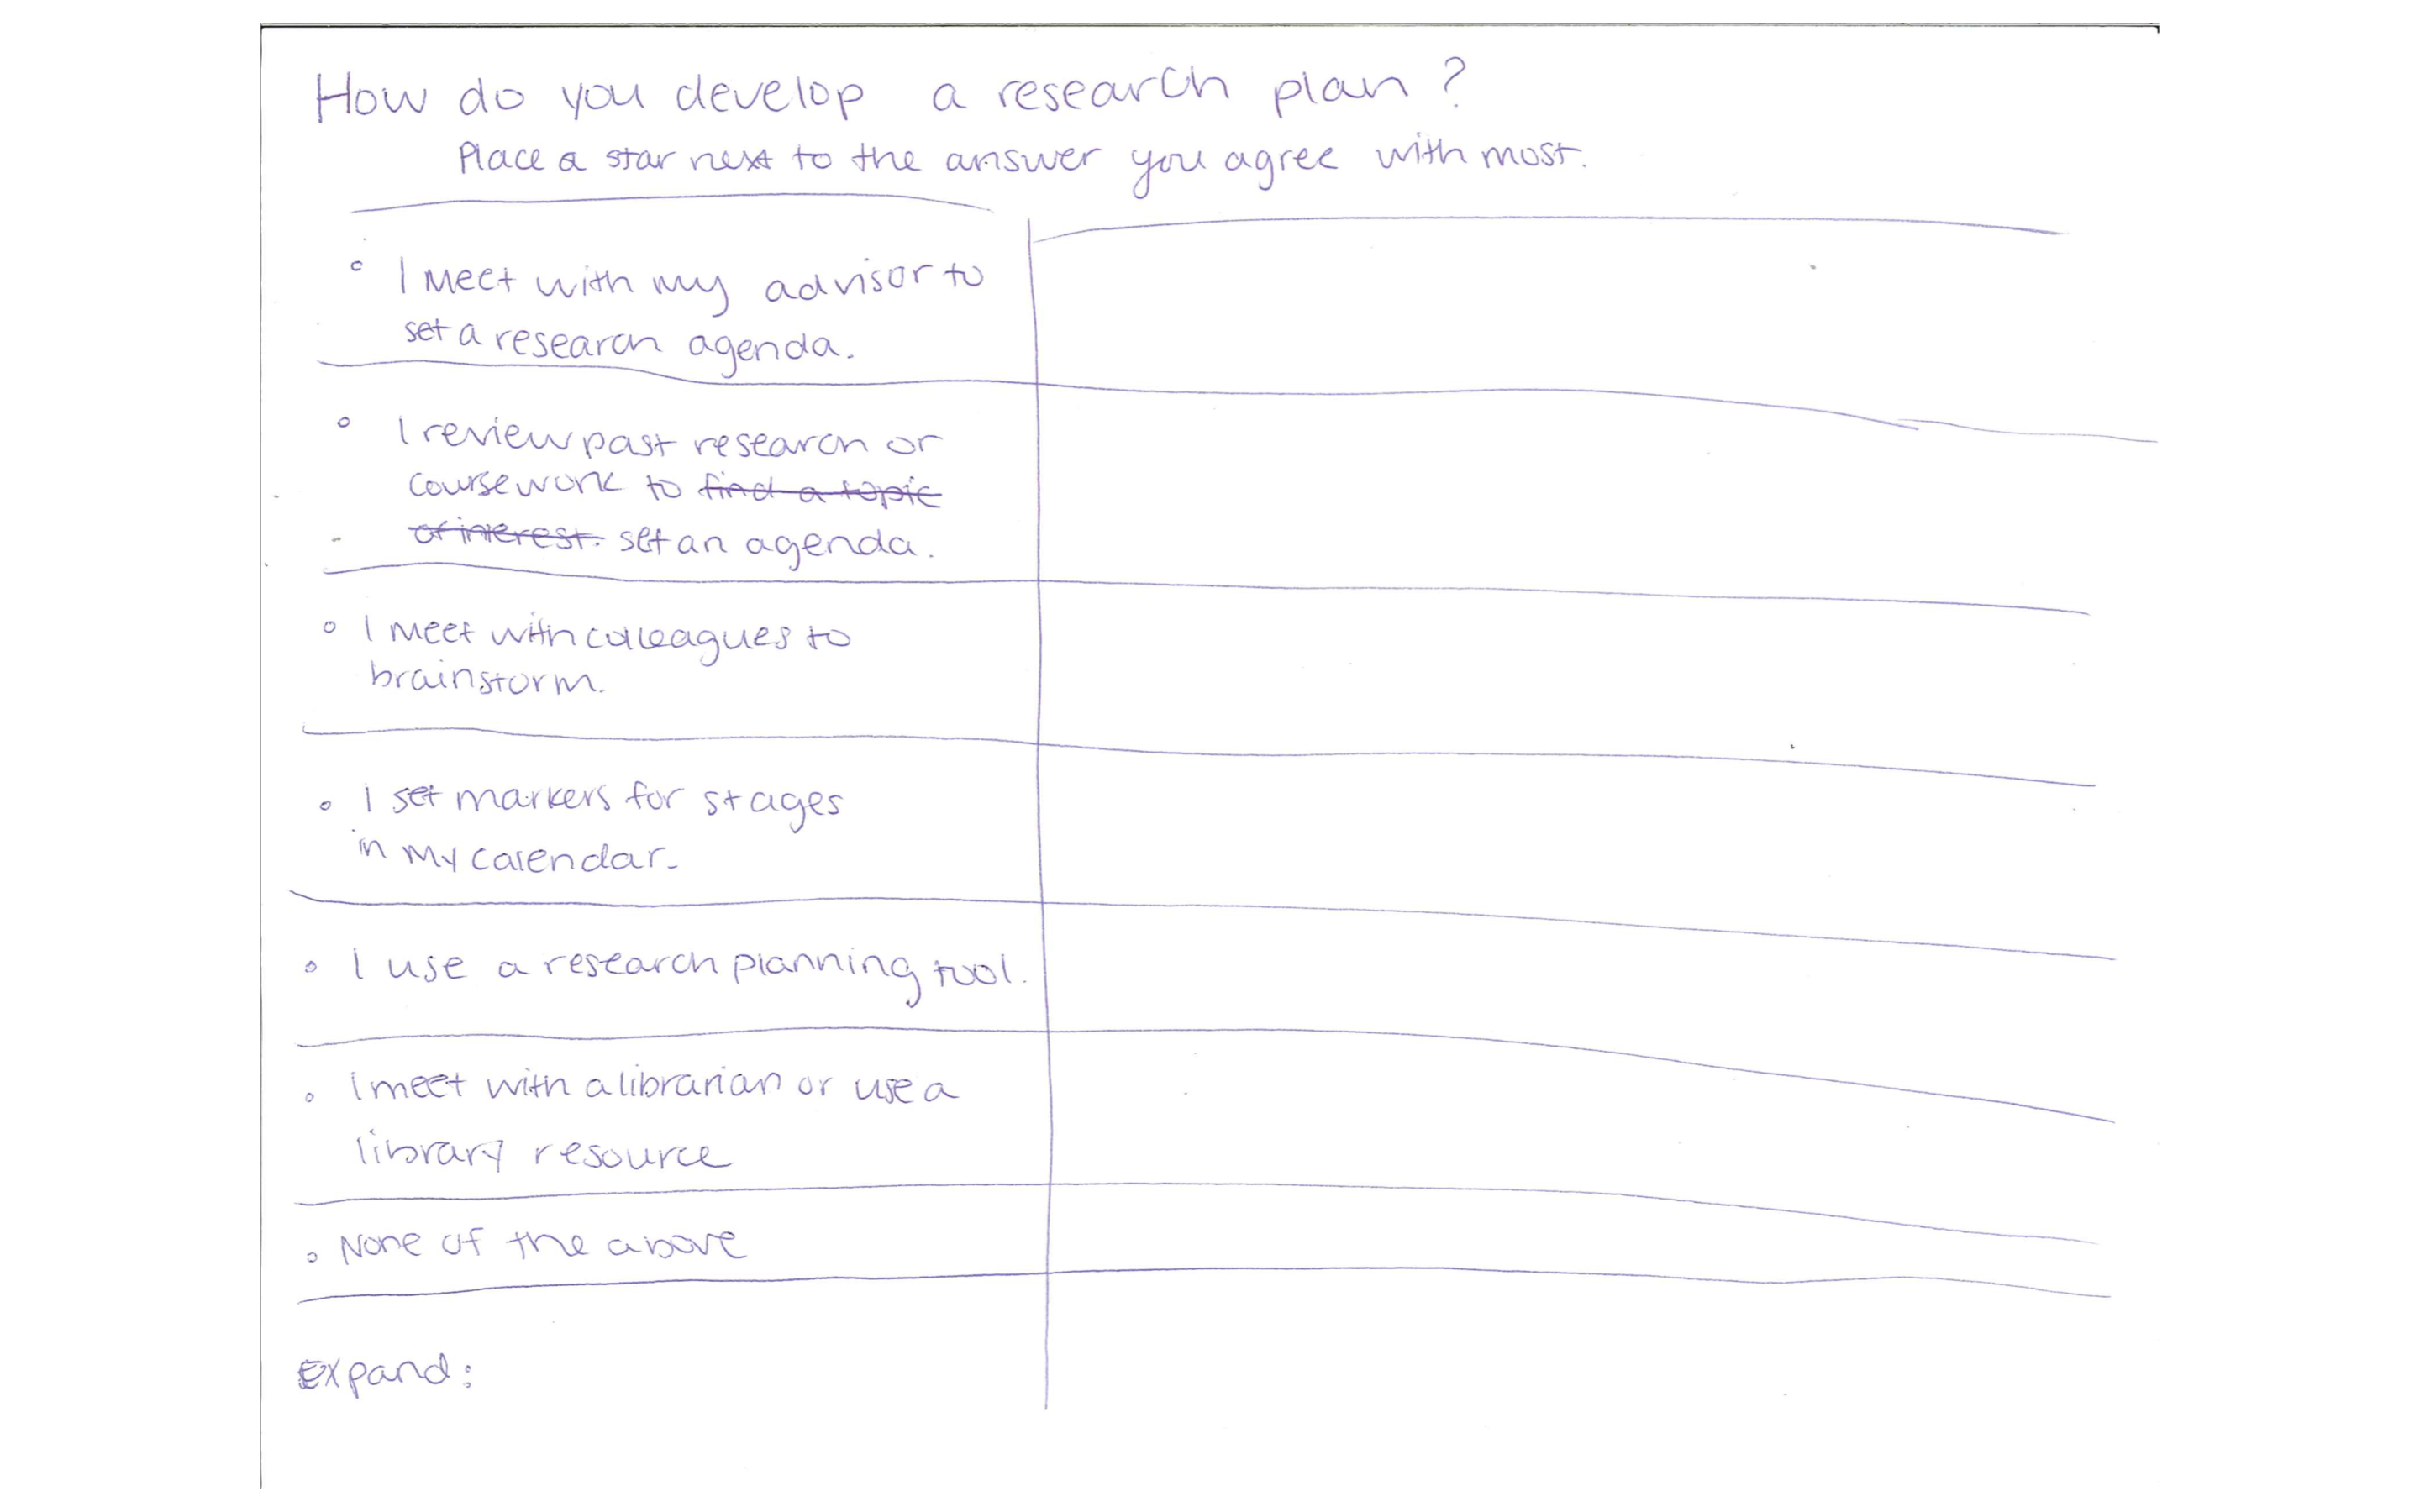 How do you develop a research plan?
Place a star next to the answer you agree with most.
° I meet with my advisor to
set a research agenda.
° I review past research or
coursework to find a topic
of interest. set an agenda.
° I meet with colleagues to
brainstorm.
° I set markers for stages
in my calendar.
° I use a research planning tool.
° I meet with a librarian or use a
library resource
° None of the above
Expand: